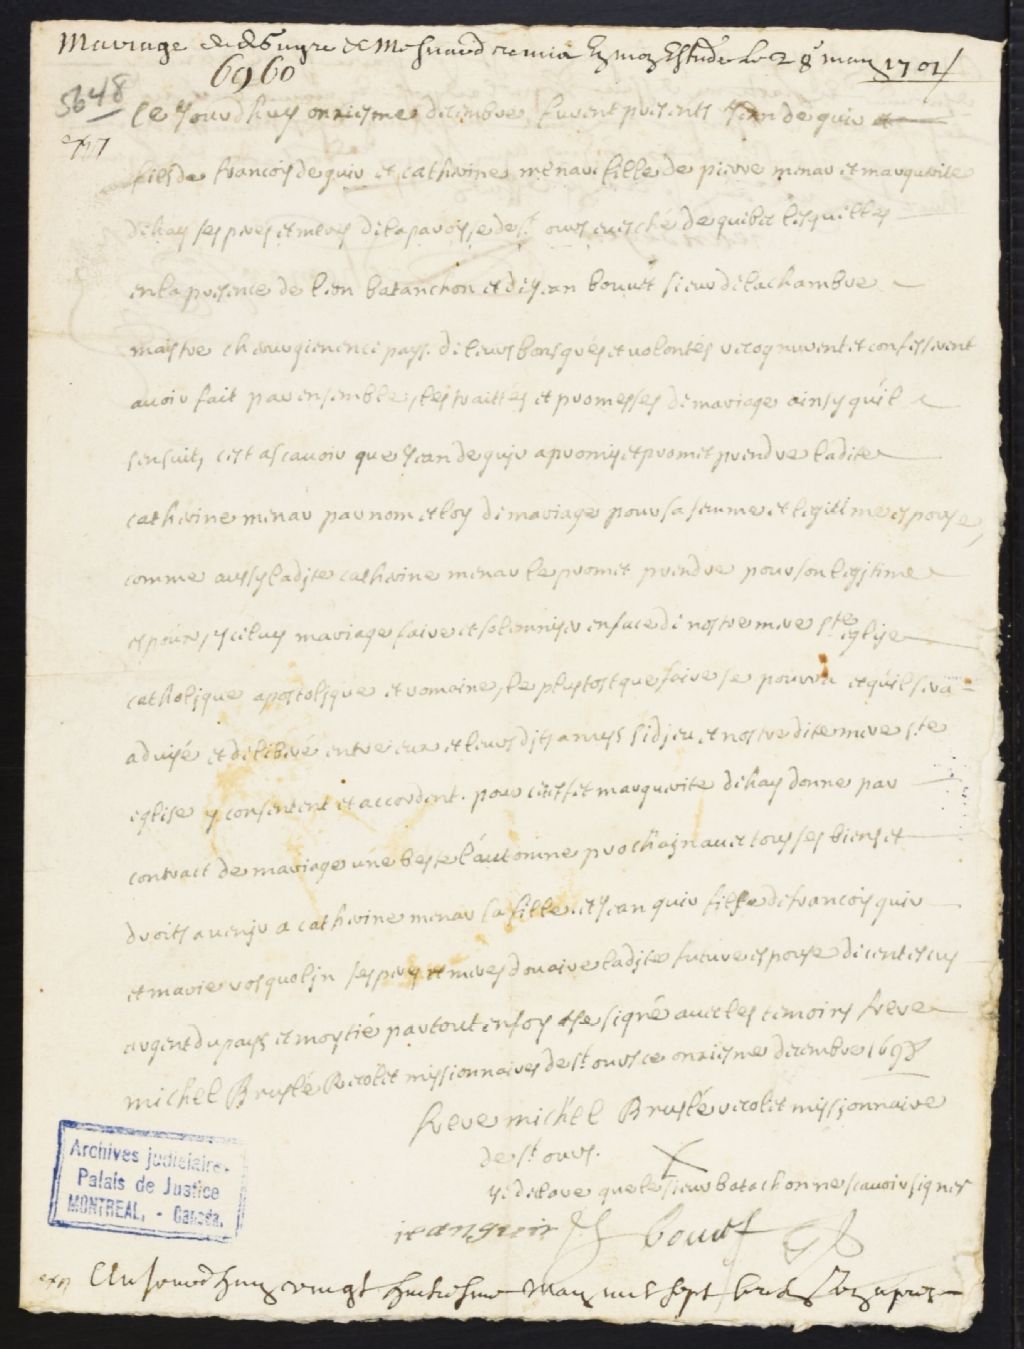 Mariage de deGuyre et Mesnard remis En mon Estude le 28e may 1701
6960
5648
Ce Jourdhuy onziesme decembre furent presents Jean de quir
fils de francois de quir et catherine menar fille de pierre menar et marguerite
dehay ses peres et meres de la paroisse de st ours evesché de quibec lesquelles
en la presence de leon batanchon et de Jean bouvet sieur de lachambre
maistre chirurgien en ce pays. de leurs bons grés et volontés recognurent et confesserent
avoir fait par ensemble, les traittés et promesses de mariage ainsy quil
sensuit, cest ascavoir que Jean de quir a promis et promet prendre ladite
catherine menar par nom et loy de mariage pour sa femme et legitime espouse,
comme aussy ladite catherine menar le promet prendre pour son legitime
espoux, iceluy mariage faire et solemniser en face de nostre mere ste eglise
catholique apostolique et romaine, le plustost que faire se pourra et quil sera
advisé et deliberé entre eux et leurs dits amys si dieu et nostre dite mere ste
eglise y consentent et accordent. pour cet effet marguerite dehay donne par
contract de mariage une beste l'automne prochain avec tous ses biens et
droits a venir a catherine menar sa fille. et Jean quir fils de francois quir
et marie rosquolin ses peres et meres douaire ladite future espouse de cent escus
argent du pays et moytié partout en foy de signé avec les temoins frere
michel Bruslé Recolet missionnaire de st ours ce onziesme decembre 1698
frere michel Bruslé recolet missionnaire
de st ours.
Je declare que le sieur batachon ne scavoir signer
jean quir bouvet
Archives judiciaires
Palais de Justice
MONTREAL, - Canada.
Aujourdhuy vingt huitiesme May mil sept cent un apres